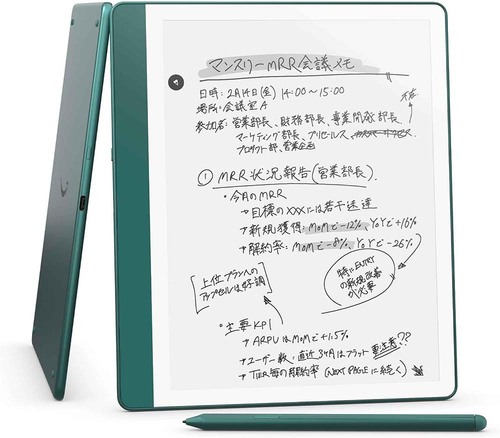 マンスリーMRR会議メモ
日時: 2月14日(金) 14:00～15:00
場所: 会議室A
欠席
参加者: 営業部長、財務部長、事業開発部長、
マーケティング部長、プリセールス、カスタマーサクセス、
プロダクト部、営業企画
① MRR状況報告(営業部長)
・今月のMRR
→目標のXXXには若干未達
→新規獲得: MoMで-12%、YoYで+16%
→解約率: MoMで-8%、YoYで-26%
[上位プランへの
アップセルは好調]
特にENTRY
の新規改善
が必要
・主要KPI
→ARPUはMoMで+1.5%
→ユーザー数: 直近3ヶ月はフラット 要注意??
→TIER毎の解約率 (NEXT PAGEに続く)